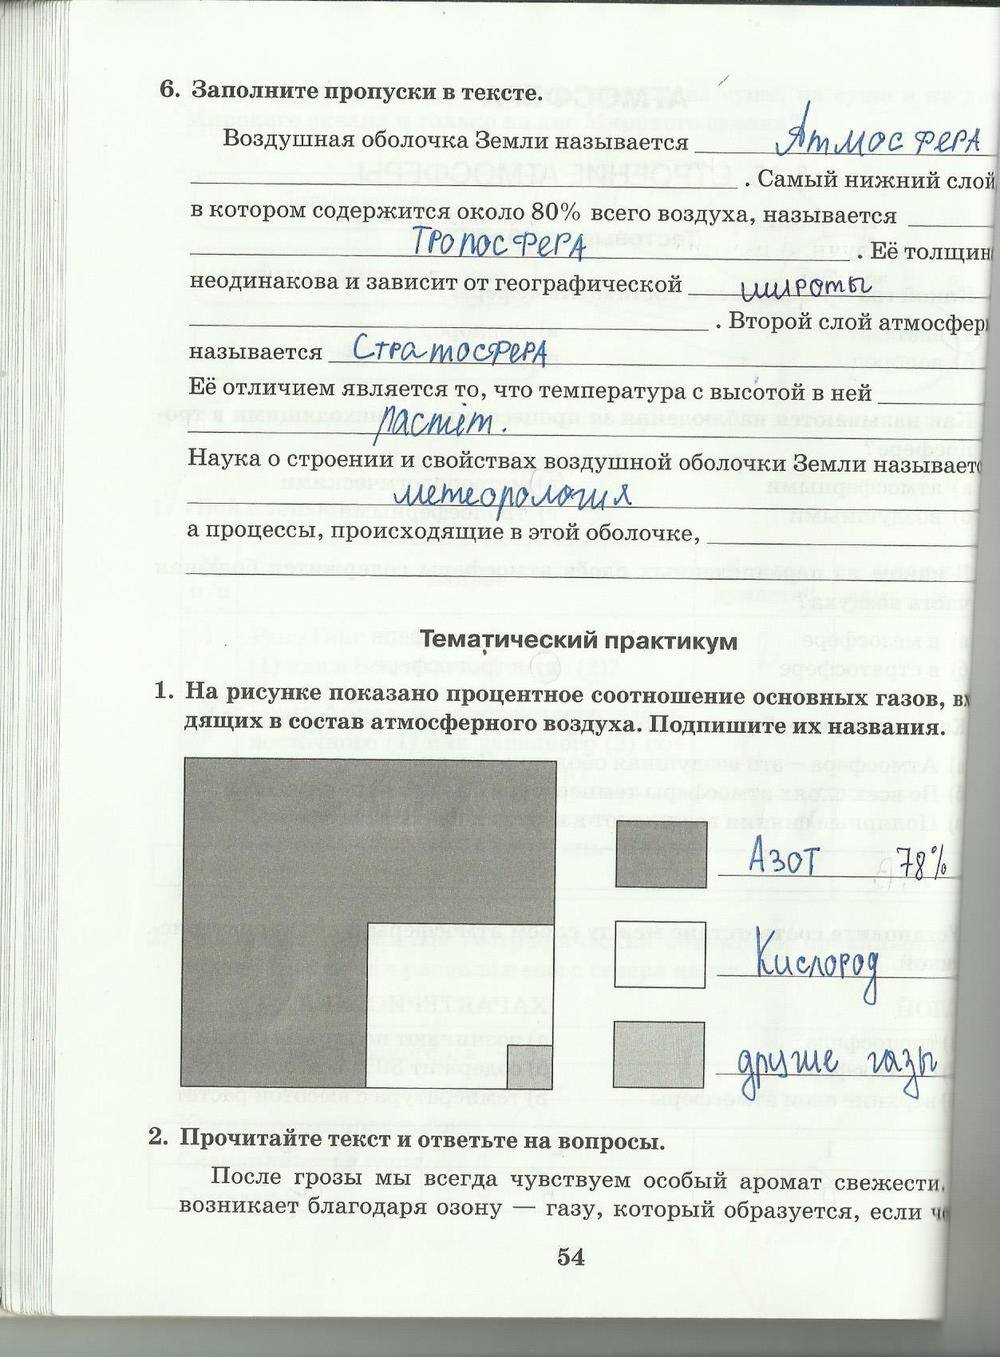 6. Заполните пропуски в тексте.
Воздушная оболочка Земли называется Атмосфера
. Самый нижний слой
в котором содержится около 80% всего воздуха, называется
Тропосфера . Её толщин
неодинакова и зависит от географической широты
. Второй слой атмосфер
называется Стратосфера
Её отличием является то, что температура с высотой в ней
растёт.
Наука о строении и свойствах воздушной оболочки Земли называет
метеорология
а процессы, происходящие в этой оболочке,
Тематический практикум
1. На рисунке показано процентное соотношение основных газов, вх
дящих в состав атмосферного воздуха. Подпишите их названия.
Азот 78%
Кислород
другие газы
2. Прочитайте текст и ответьте на вопросы.
После грозы мы всегда чувствуем особый аромат свежести.
возникает благодаря озону — газу, который образуется, если че
54